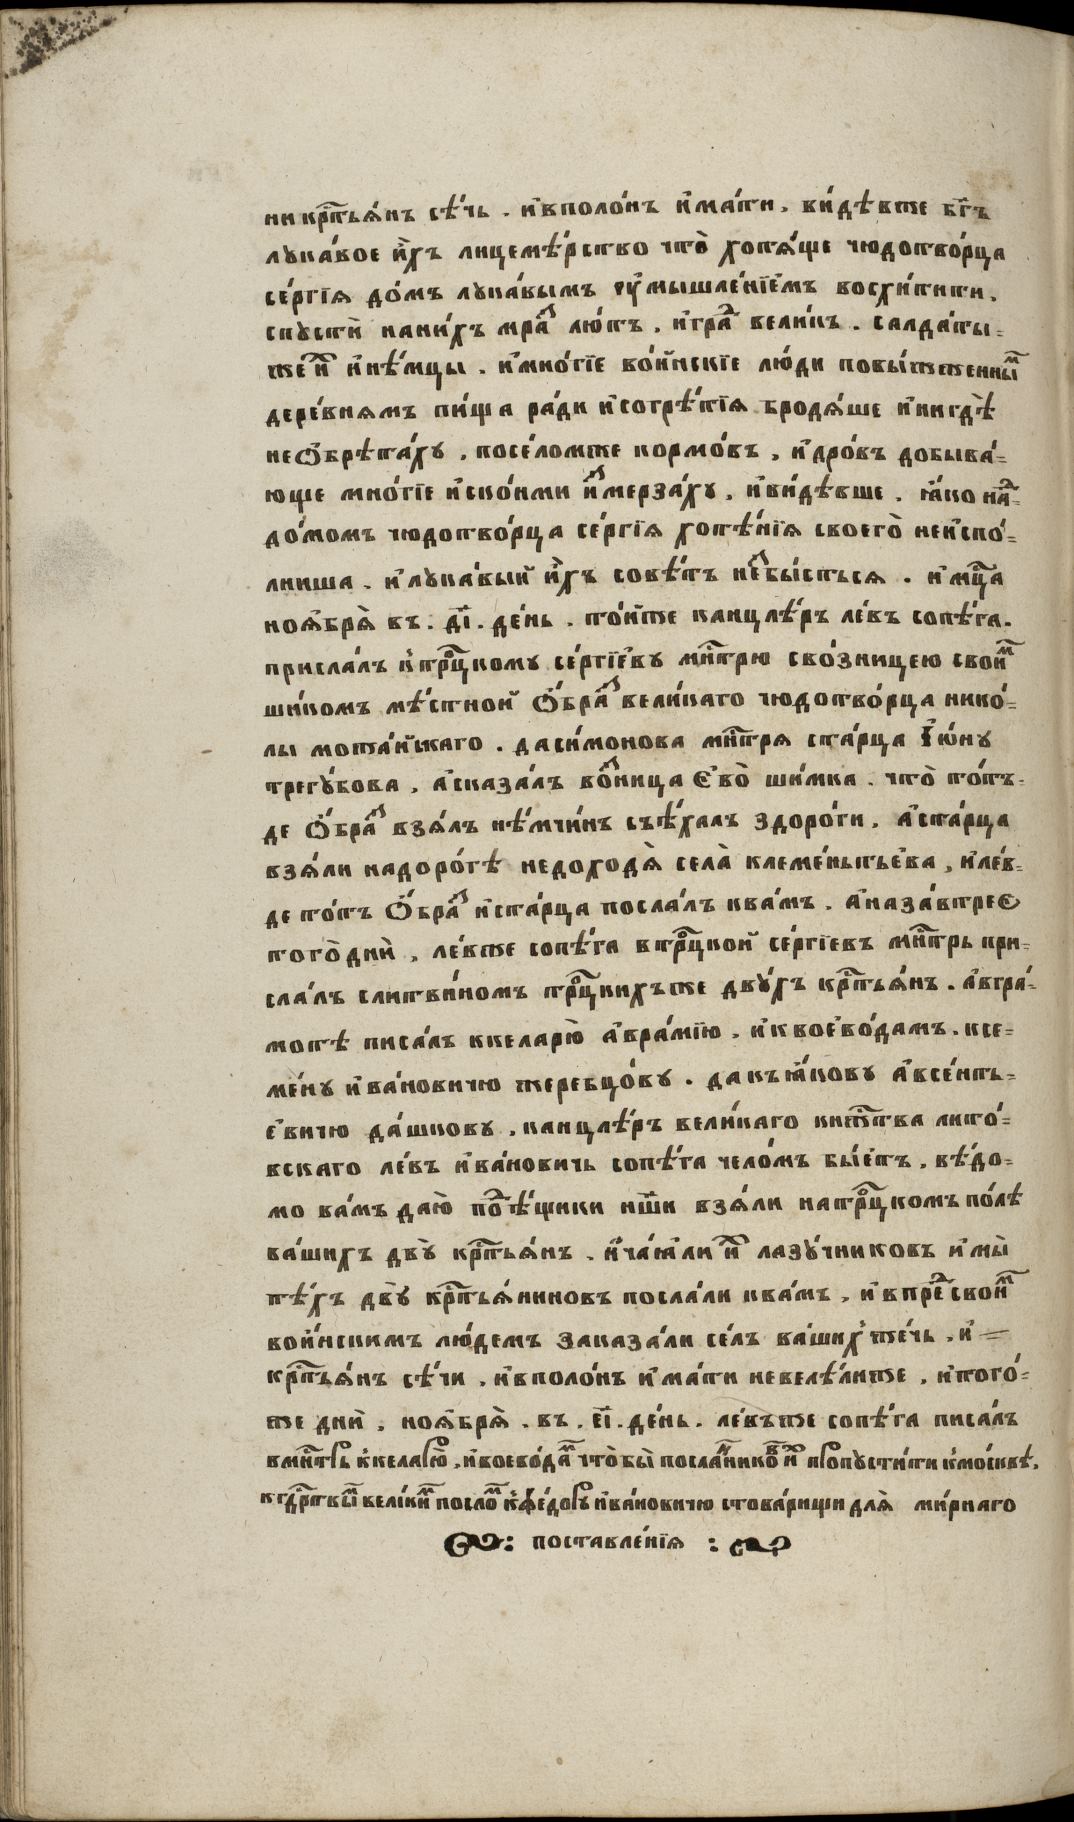 ни кр҃тьѧ́нъ сѣ́чь . и҆вполо́нъ и҆ма́ти . ви́дѣвже бг҃ъ
лꙋка́вое и҆̀хъ лицемѣ́рство что̀ хотѧ́ще чюдотво́рца
се́ргїѧ до́мъ лꙋка́вымъ ᲂу҆мышле́нїемъ восхи́тити .
спꙋстѝ нани́хъ мраⷥ҇ лю́тъ . и҆граⷣ҇ вели́къ . салда́ты =
же иⷯ҇ и҆нѣ́мцы . и҆мно́гїе во́йнскїе лю́ди повы́жженныⷨ҇
дере́внѧмъ пи́ща ра́ди и҆согрѣ́тїѧ бродѧ́ше и҆нигдѣ̀
неѡ҆брѣта́хꙋ , посе́ломже кормо́въ , и҆дро́въ добыва́ =
юще мно́гїе и҆ско́нми и҆ⷥ҇мерза́хꙋ , и҆ви́дѣвше . ꙗ҆́ко наⷣ҇ =
до́момъ чюдотво́рца се́ргїѧ хотѣ́нїѧ своего̀ неи҆спо́ =
лниша . и҆лꙋка́вый и҆̀хъ совѣ́тъ неⷥ҇бы́стьсѧ . и҆мцⷭ҇а
ноѧ҆брѧ̀ въ . д҃і . де́нь . то́йже канцлѣ́ръ ле́въ сопѣ́га .
присла́лъ к̾трⷪ҇цкому се́ргїевꙋ мн҃трю сво́зницею своиⷨ҇
шико́мъ мѣ́стной ѡ҆́браⷥ҇ вели́каго чюдотво́рца нико́ =
лы можа́йскаго . даси́монова мн҃трѧ ста́рца і҆ю́нꙋ
трегꙋ́бова , а҆сказа́лъ воⷥ҇ница є҆во̀ ши́мка . что̀ то́тъ =
де ѡ҆́браⷥ҇ взѧ́лъ нѣ́мчинъ съѣ́халъ здоро́ги . а҆ста́рца
взѧ́ли надоро́гѣ недоходѧ̀ села̀ клеме́нтьева , и҆ле́в
де то́тъ ѡ҆́браⷥ҇ и҆ста́рца посла́лъ ква́мъ . а҆наза́втреє
того̀ днѝ , ле́вже сопѣ́га втрⷪ҇цкой се́ргїевъ мн҃трь при =
сла́лъ слитви́номъ трⷪ҇цкихъже двꙋ́хъ кр҃тьѧ́нъ . а҆вгра́ =
мотѣ писа́лъ ккеларю̀ а҆вра́мїю . и҆квоево́дамъ . ксе =
ме́нꙋ и҆ва́новичю жеребцо́вꙋ . дакъꙗ҆́ковꙋ а҆все́нть =
евичю да́шковꙋ , канцлѣ́ръ вели́каго кнѧжⷭ҇тва лито́ =
вскаго ле́въ и҆ва́новичь сопѣ́га чело́мъ бїе́тъ , вѣ́до =
мо ва́мъ даю̀ поⷣ҇ѣ́щики нш҃и взѧ́ли натрⷪ҇цкомъ по́лѣ
ва́шихъ двꙋ̀ кр҃тьѧ́нъ . и҆ча́ѧли иⷯ҇ лазꙋ́чниковъ и҆мы̀
тѣ́хъ двꙋ̀ кр҃тьѧ́ниновъ посла́ли ква́мъ , и҆впреⷣ҇ своиⷨ҇
во́инскимъ лю́демъ заказа́ли се́лъ ва́шихъ же́чь . и҆ =
кр҃тьѧ́нъ сѣ́чи . и҆вполо́нъ и҆ма́ти невелѣ́лиже , и҆того́ =
же днѝ , ноѧ҆брѧ̀ . въ . е҃і . де́нь . ле́въже сопѣ́га писа́лъ
вмн҃трь к̾келарю̀ . и҆воево́даⷨ҇ что́бы посла́ⷩ҇никоⷡ҇ иⷯ҇ пропꙋсти́ти к̾москвѣ̀ ,
к гдⷭ҇рствыⷨ҇ вели́киⷨ҇ послоⷨ҇ к̾ѳе́дорꙋ и҆ва́новичю стова́рищи длѧ̀ ми́рнаго
: поставле́нїѧ :